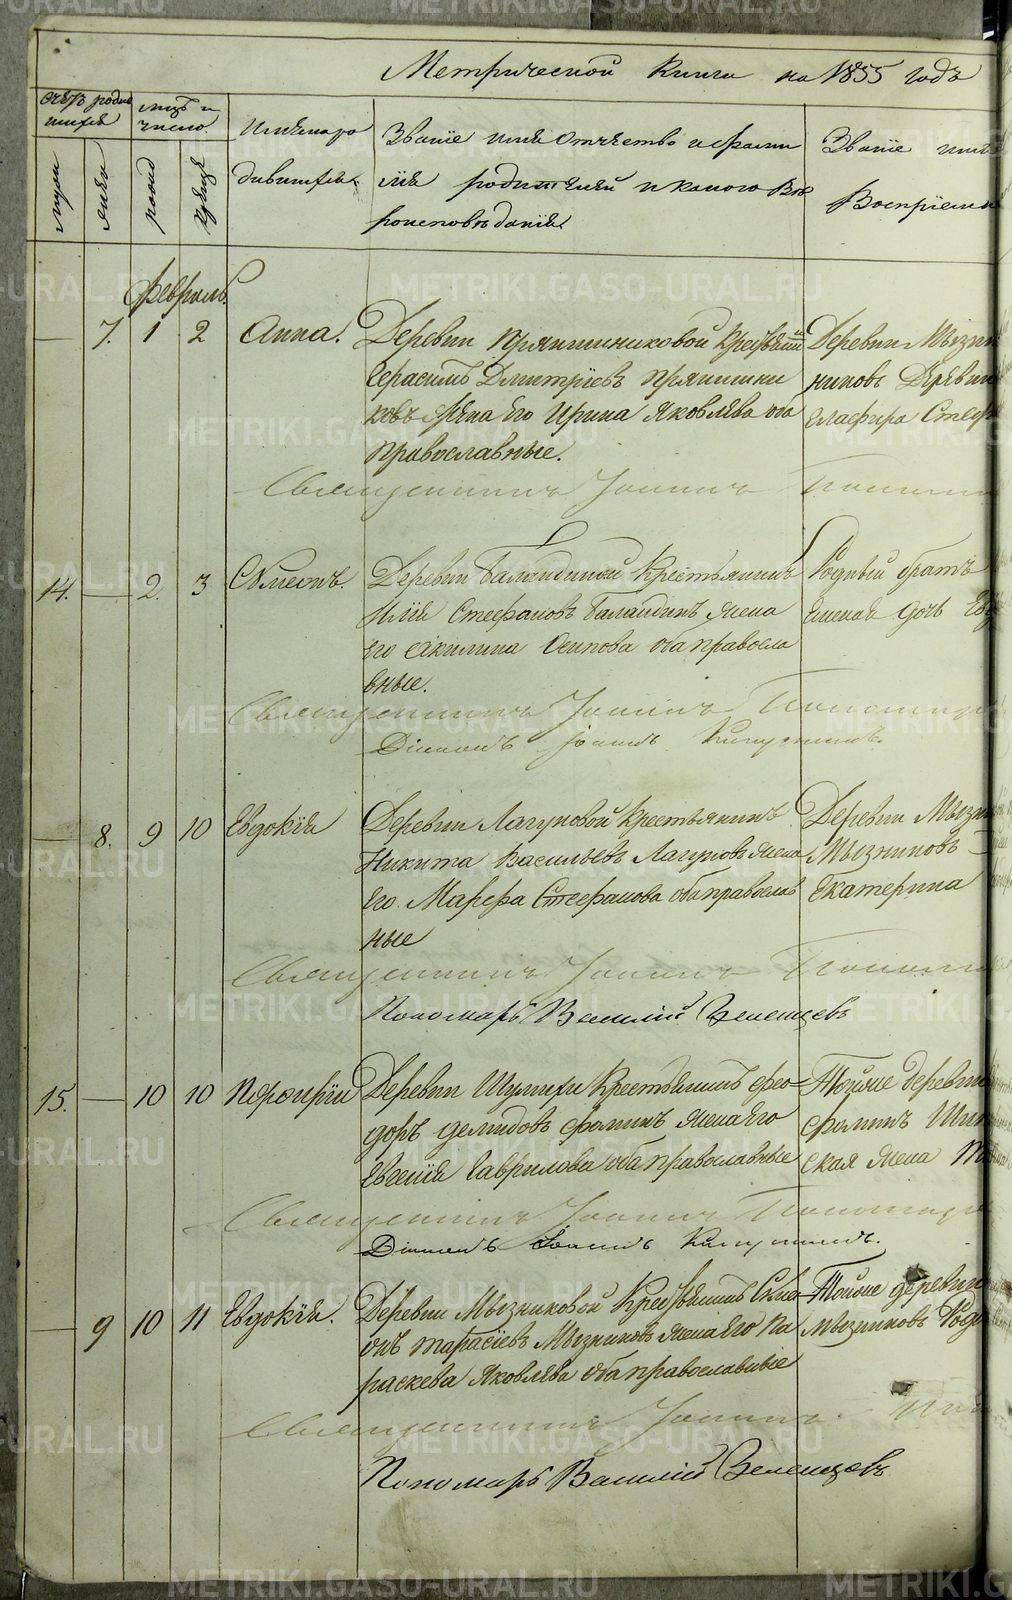 Метрической Книги на 1855 годъ
Счетъ родив
шихся
муж
жен
мцъ и
число.
рожд
крещ
Имя наро
дившихся.
Званіе имя отчество и фами
лія родителей и какого вѣ
роисповѣданія
Званіе имя
Воспріемн
Февраль.
— 7. 1 2 Анна.
Деревни Пряпишниковой Крестьянинъ
Герасимъ Дмитріевъ Пряпишни
ковъ Жена его Ирина Яковлева оба
православные.
Деревни Мызни
никовъ
Глафира Стеф
Священникъ Іоаннъ
14. — 2. 3 Сѵмеонъ.
Деревни Баландиной Крестьянинъ
Илія Стефановъ Баландинъ жена
его Акилина Осипова оба правосла
вные.
Родный братъ
дочь Евд
Священникъ Іоаннъ
Діаконъ Іоаннъ
— 8. 9 10 Евдокія
Деревни Лагуновой Крестьянинъ
Никита Васильевъ Лагуновъ жена
Его Марфа Стефанова оба православ
ные
Деревни Мызни
Мызниковъ
Екатерина
Священникъ Іоаннъ
Пономарь Василій Зеленцовъ
15. — 10 10 Порфирій
Деревни Шумихи Крестьянинъ Фео-
доръ Демидовъ Фоминъ жена Его
Евгенія Гаврилова оба православные
Тойже деревни
Фоминъ
ская жена
Священникъ Іоаннъ
Діаконъ Іоаннъ
— 9 10 11 Евдокія.
Деревни Мызниковой Крестьянинъ Сѵме-
онъ Тарасіевъ Мызниковъ жена Его Па
раскева Яковлева оба православные
Тойже деревни
Мызниковъ
Священникъ Іоаннъ
Пономарь Василій Зеленцовъ
METRIKI.GASO-URAL.RU